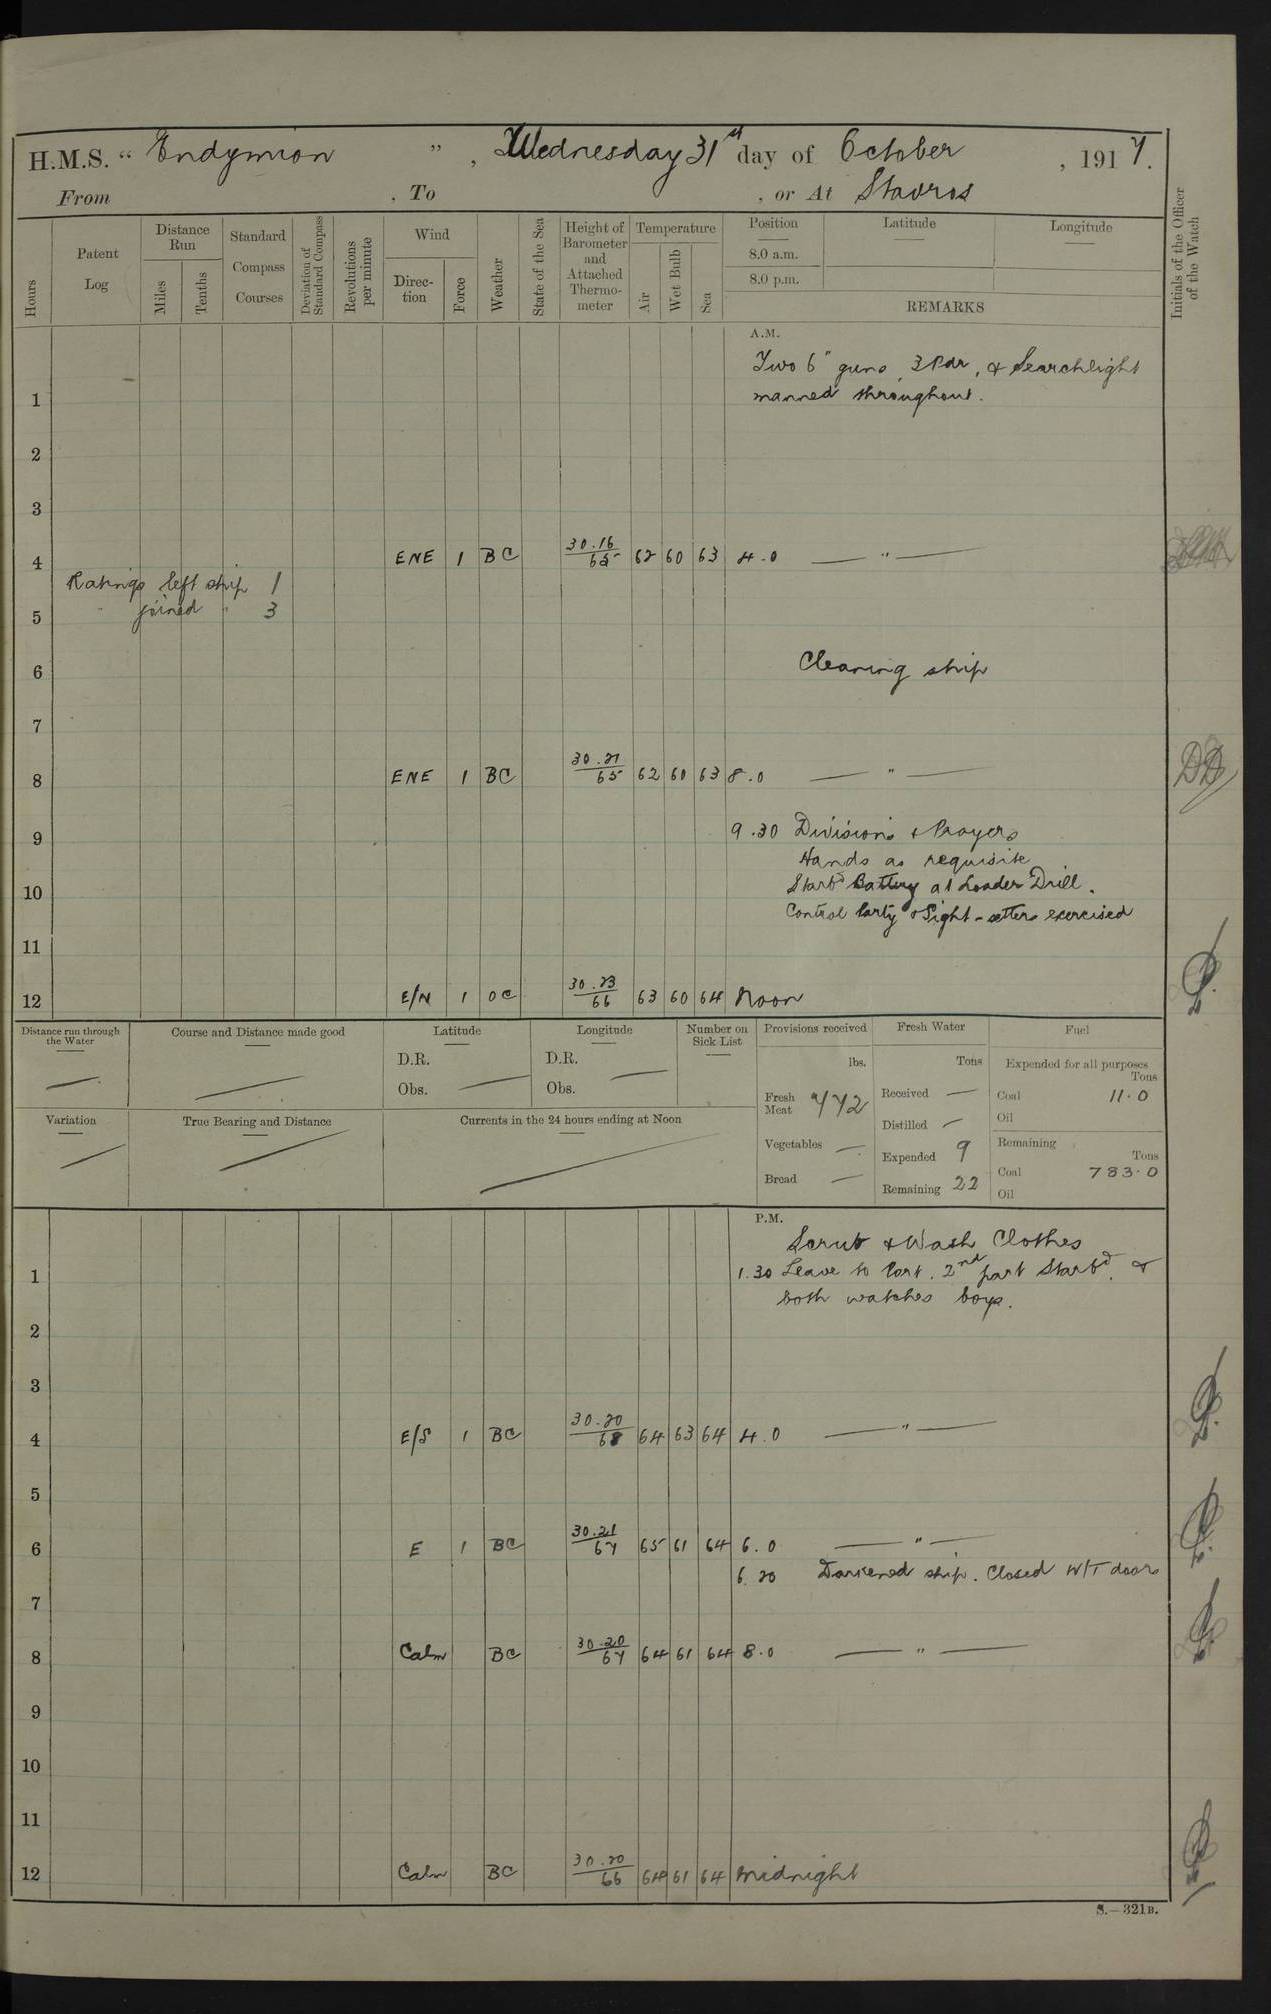 H.M.S. “ Endymion ” , Wednesday 31st day of October , 1917.
From , To , or At Stavros
Hours
Patent Log
Distance Run
Miles
Tenths
Standard Compass Courses
Deviation of Standard Compass
Revolutions per minute
Wind
Direc-tion
Force
Weather
State of the Sea
Height of Barometer and Attached Thermo-meter
Temperature
Air
Wet Bulb
Sea
Position
8.0 a.m.
8.0 p.m.
Latitude
Longitude
REMARKS
Initials of the Officer of the Watch
A.M.
Two 6" guns, 3 Pdr, & Searchlight
1 manned throughout.
2
3
4 ENE 1 BC 30.16 65 62 60 63 4.0 — " —
Ratings left ship 1
5 " joined " 3
6 Cleaning ship
7
8 ENE 1 BC 30.21 65 62 60 63 8.0 — " —
9 9.30 Divisions & Prayers
Hands as requisite
10 Starbd Battery at Loader Drill.
Control Party & Sight-setters exercised
11
12 E/N 1 OC 30.23 66 63 60 64 Noon
Distance run through the Water
Course and Distance made good
Latitude
D.R.
Obs.
Longitude
D.R.
Obs.
Number on Sick List
Provisions received
lbs.
Fresh Meat 772
Vegetables —
Bread —
Fresh Water
Tons
Received —
Distilled —
Expended 9
Remaining 22
Fuel
Expended for all purposes
Tons
Coal 11.0
Oil
Remaining
Tons
Coal 783.0
Oil
Variation
True Bearing and Distance
Currents in the 24 hours ending at Noon
P.M.
Scrub & Wash Clothes
1 1.30 Leave to Port. 2nd part Starbd. &
both watches boys.
2
3
4 E/S 1 BC 30.20 68 64 63 64 4.0 — " —
5
6 E 1 BC 30.21 67 65 61 64 6.0 — " —
6.20 Darkened ship. Closed W/T doors
7
8 Calm BC 30.20 67 64 61 64 8.0 — " —
9
10
11
12 Calm BC 30.20 66 64 61 64 Midnight
S.—321B.